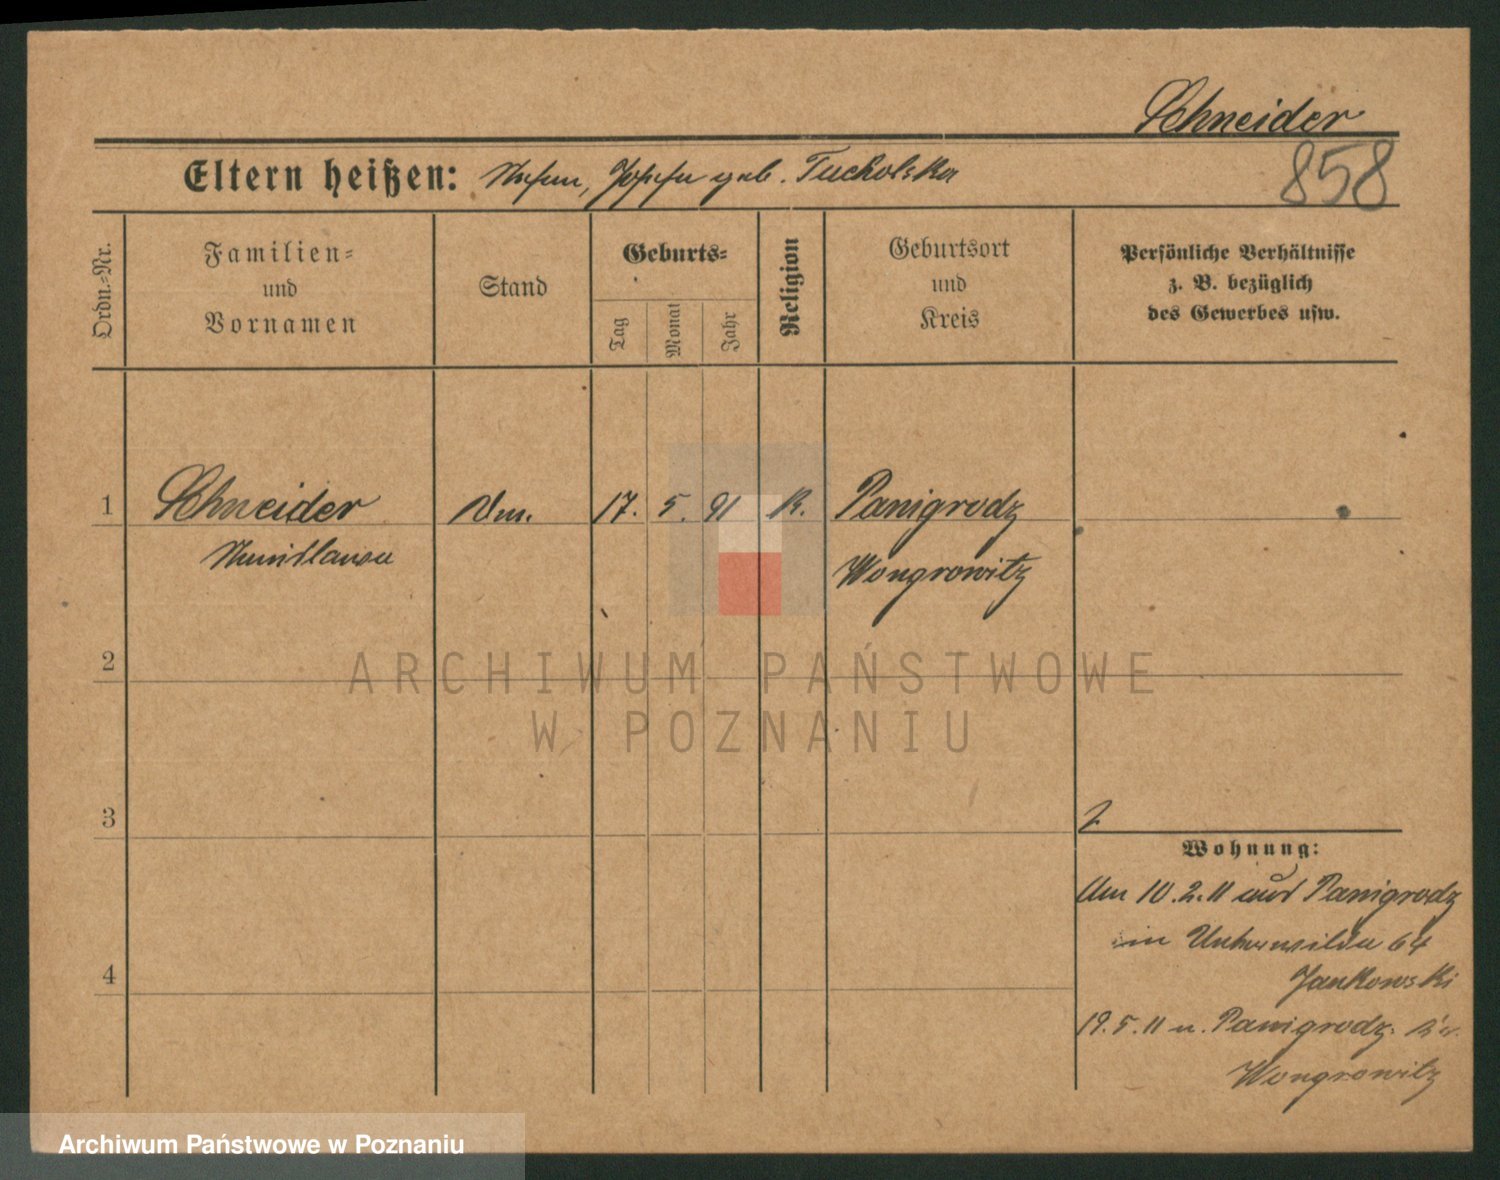 Schneider
858
Eltern heißen: Stefan, Josefa geb. Tucholska
Ordn.=Nr.
Familien=
und
Vornamen
Stand
Geburts=
Tag
Monat
Jahr
Religion
Geburtsort
und
Kreis
Persönliche Verhältnisse
z. B. bezüglich
des Gewerbes usw.
1 Schneider 17. 5. 91 K. Panigrodz
Wongrowitz
2
ARCHIWUM PAŃSTWOWE
W POZNANIU
3
Wohnung:
Am 10.2.11 aus Panigrodz
in Unterwilda 64
Jankowski
4
19.5.11 n. Panigrodz. Kr.
Wongrowitz
Archiwum Państwowe w Poznaniu